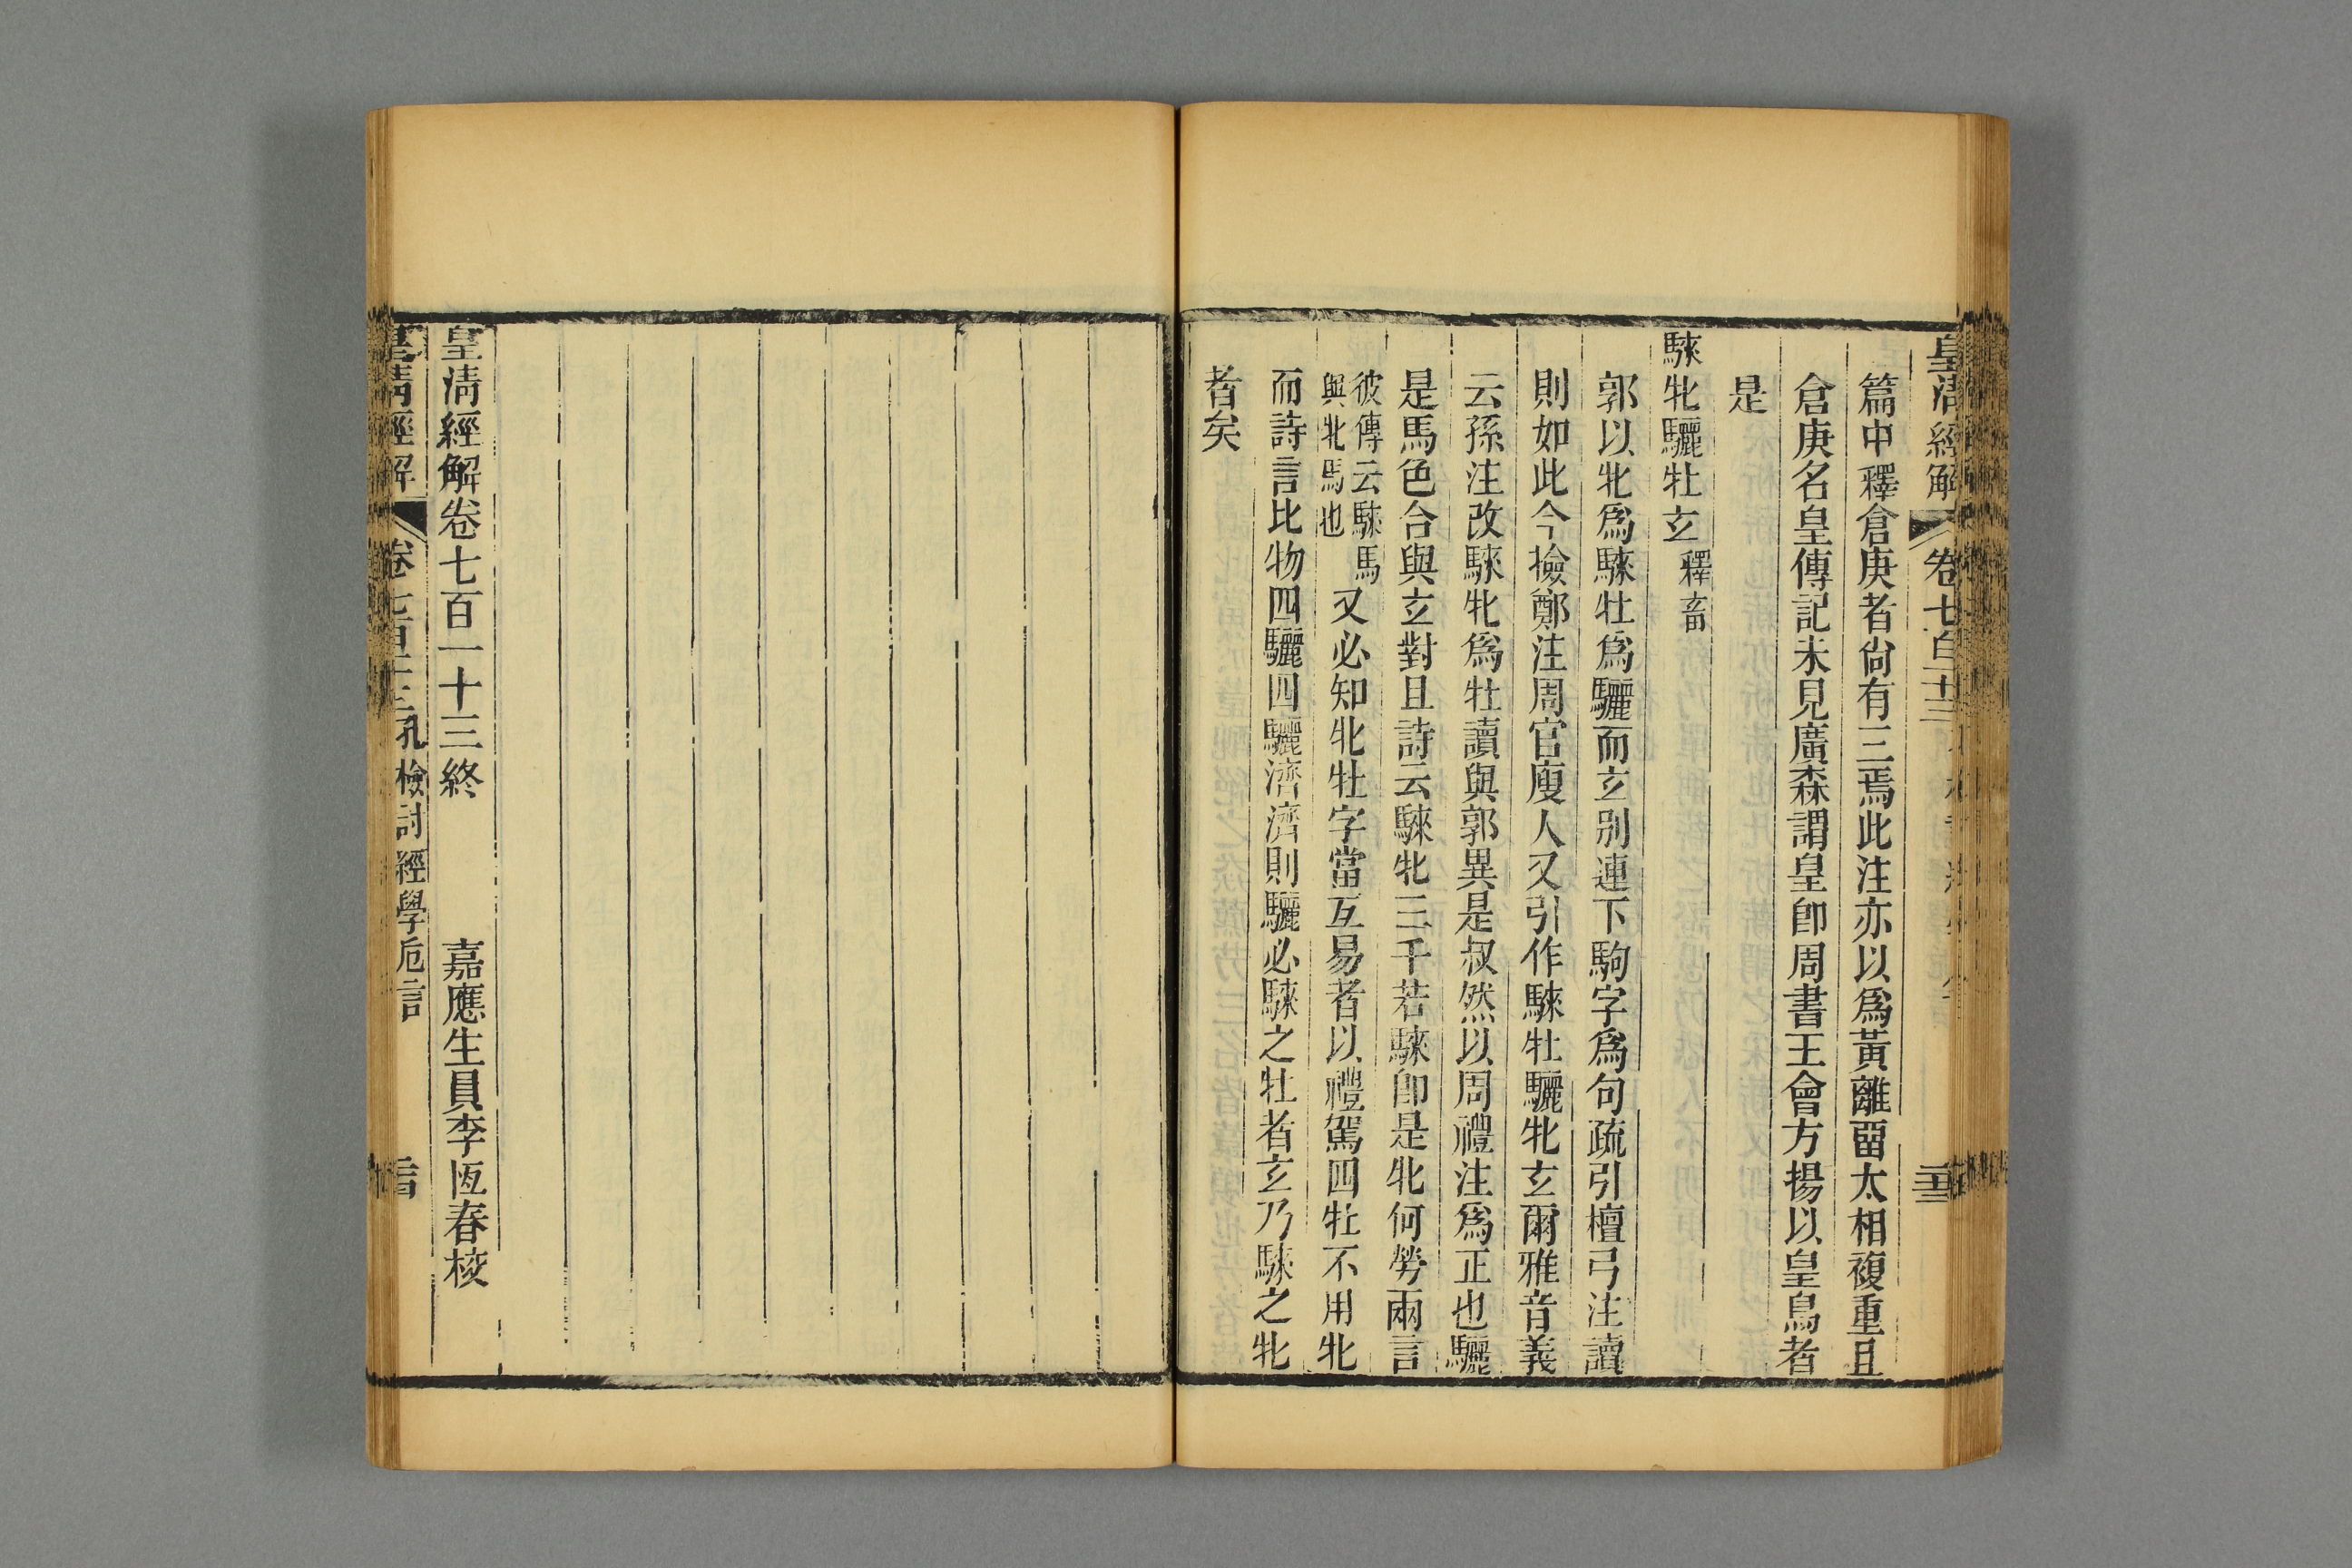 皇清經解 卷七百十三
篇中釋倉庚者尙有三焉此注亦以爲黃離畱太相複重且
倉庚名皇傳記未見廣森謂皇卽周書王會方揚以皇鳥者
是
騋牝驪牡玄釋畜
郭以牝爲騋牡爲驪而玄别連下駒字爲句疏引檀弓注讀
則如此今撿鄭注周官廋人又引作騋牡驪牝玄爾雅音義
云孫注改騋牝爲牡讀與郭異是叔然以周禮注爲正也驪
是馬色合與玄對且詩云騋牝三千若騋卽是牝何勞兩言
彼傳云騋馬
與牝馬也
又必知牝牡字當互易者以禮駕四牡不用牝
而詩言比物四驪四驪濟濟則驪必騋之牡者玄乃騋之牝
者矣
皇清經解卷七百一十三終 嘉應生員李恆春校
皇清經解 卷七百十三 孔檢討經學卮言